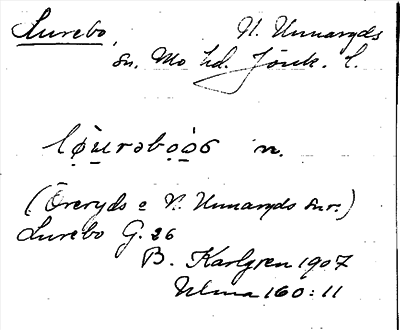 Lurebo,
N. Unnaryds
sn. Mo hd. Jönk. l.
n.
(Öreryds o N. Unnaryds snr.)
Lurebo G. 26
B. Karlgren 1907
Ulma 160:11